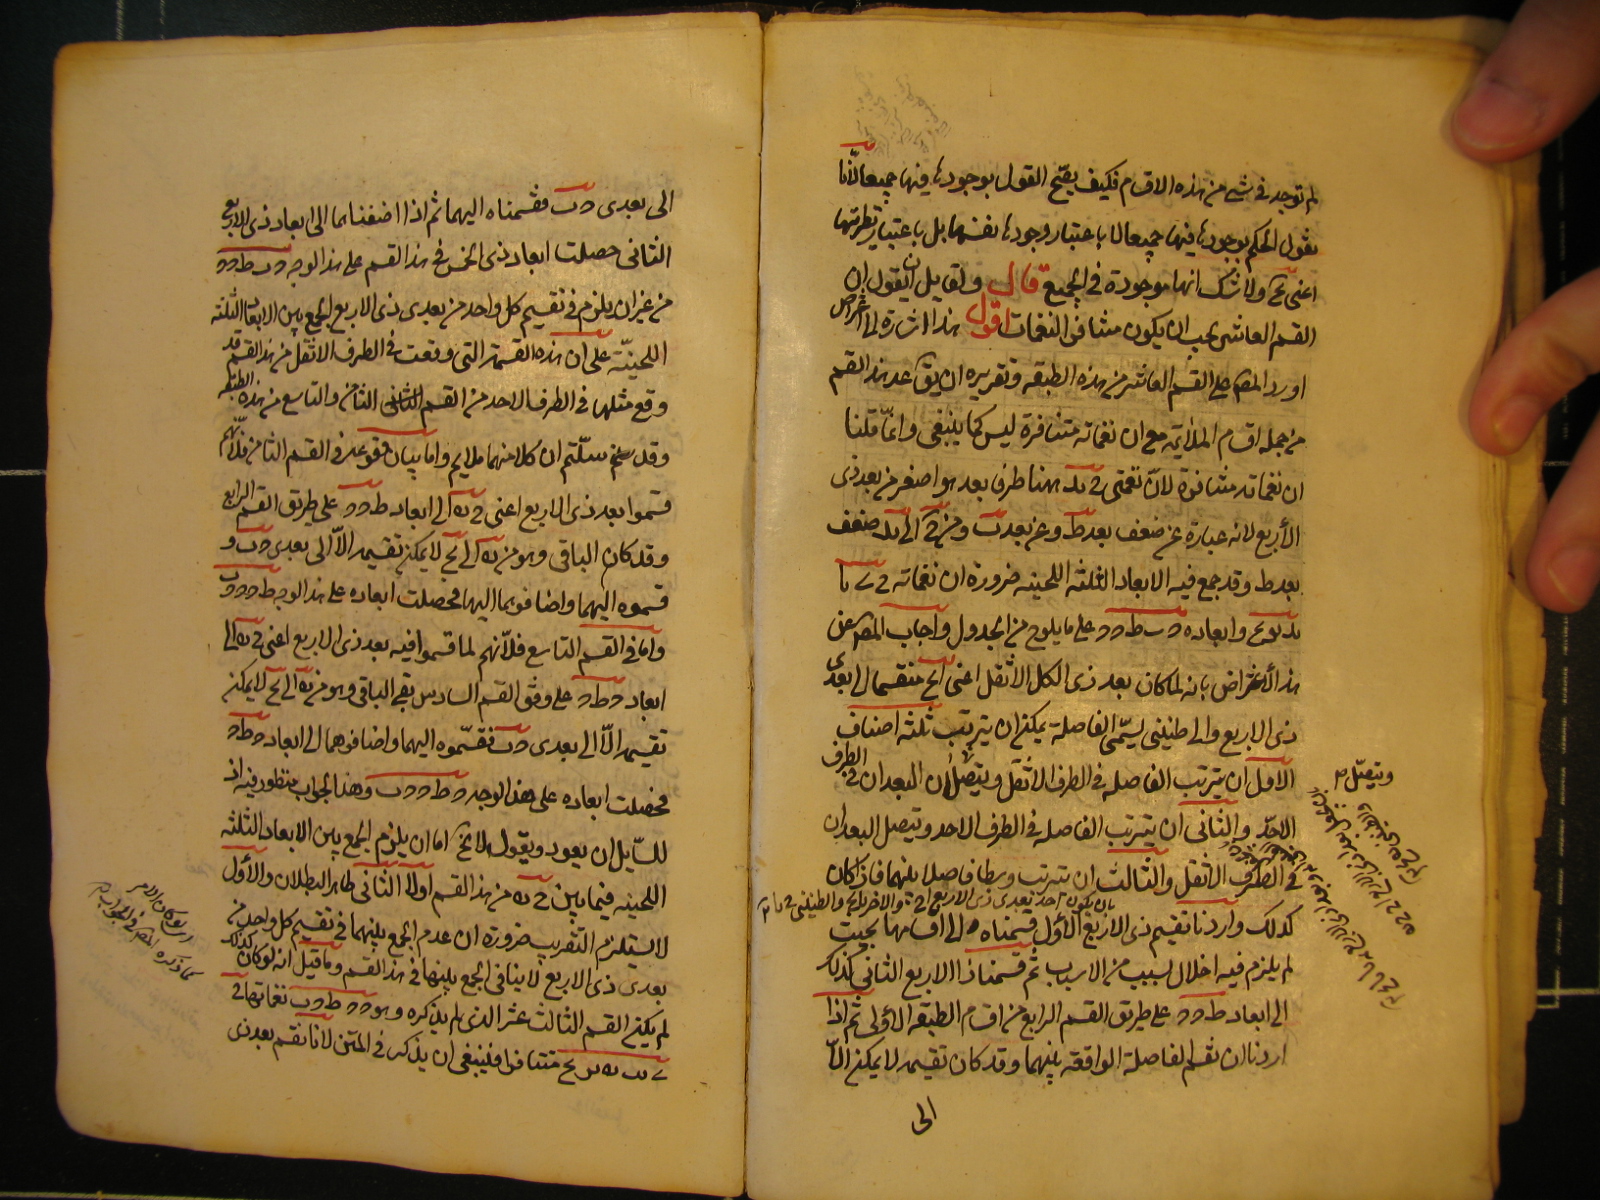 لم توجد فی شی من هذه الاقسام فکیف یصح القول بوجودها فیها جمیعا لانا
نقول الحکم بوجودها فیها جمیعا لا باعتبار وجودها نفسها بل باعتبار نظیرتها
اعنی یح ولا شک انها موجودة فی الجمیع قال ولقایل ان یقول ان
القسم العاشر یجب ان یکون متنافر النغمات اقول هذا اشارة الی اعتراض
اورد المص علی القسم العاشر من هذه الطبقه وتقریره ان یق عد هذا القسم
من جمله اقسام الملائمه مع ان نغماته متنافرة لیس کما ینبغی وانما قلنا
ان نغماته متنافرة لان نغمتی ح ید ههنا طرفا بعد هو اصغر من بعد ذی
الأربع لانه عبارة عن ضعف بعد ط وعن بعد ب ومن ح الی ید ضعف
بعد ط وقد جمع فیه الابعاد الثلثه اللحینه ضرورة ان نغماته
وابعاده علی ما یلوح من الجدول واجاب المص عن
هذا الأعتراض بانه لما کان بعد ذی الکل الاثقل اعنی ایح منقسما الی بعدی
ذی الاربع والی طنینی یسمی الفاصلة یمکن ان یترتب ثلثه اصناف
الاول ان یترتب الفاصله فی الطرف الاثقل ویتصل البعدان فی الطرف
الاحد والثانی ان یترتب الفاصله فی الطرف الاحد ویتصل البعدان
فی الطرف الاثقل والثالث ان یترتب وسطا فاصلا بینهما فاذا کان
بان یکون احد بعدی ذی الاربع والاخر والطنینی
کذلک واردنا تقسیم ذی الاربع الأول قسمناه الی اقسامها بحیث
لم یلزم فیه اخلال بسبب من الاسباب ثم قسمنا ذا الاربع الثانی کذلک
الی ابعاد ط د د علی طریق القسم الرابع من اقسام الطبقه الأولی ثم اذا
اردنا ان نقسم الفاصلة الواقعه بینهما وقد کان تقسیمه لا یمکن الا
الی
ویتصل
الی بعدی د ب فقسمناه الیهما ثم اذا اضفناهما الی ابعاد ذی الاربع
الثانی حصلت ابعاد ذی الخمس فی هذا القسم علی هذا الوجه د ب ط د د
من غیر ان یلزم فی تقسیم کل واحد من بعدی ذی الاربع الجمع بین الابعاد الثلثه
اللحینیة علی ان هذه القسمة التی وقعت فی الطرف الاثقل من هذا القسم قد
وقع مثلها فی الطرف الاحد من القسم الثامن والتاسع من هذه الطبقه
وقد سلمتم ان کلا منهما ملایم واما بیان وقوعه فی القسم الثامن فلانهم
قسموا بعد ذی الاربع اعنی ح یه الی ابعاد ط د د علی طریق القسم الرابع
وقد کان الباقی وهو من یه الی یح لا یمکن تقسیمه الا الی بعدی د ب و
قسموه الیهما واضافوهما الیها فحصلت ابعاده علی هذا الوجه ط د د د ب
واما فی القسم التاسع فلانهم لما قسموا فیه بعد ذی الاربع اعنی ح یه الی
ابعاد د ط د علی وفق القسم السادس بقی الباقی وهو من یه الی یح لا یمکن
تقسیمه الا الی بعدی د ب فقسموه الیهما واضافوهما الی ابعاد د ط د
فحصلت ابعاده علی هذا الوجه د ط د د ب وهذا الجواب منظور فیه اذ
للسایل ان یعود ویقول لا یخ اما ان یلزم الجمع بین الابعاد الثلثه
اللحینه فیما بین ح یه من هذا القسم اولا الثانی ظاهر البطلان والأول
لا یستلزم التقریب ضرورة ان عدم الجمع بینهما فی تقسیم کل واحد من
بعدی ذی الاربع لا ینافی الجمع بینها فی هذا القسم وما قیل انه لو کان کذلک
لم یکن القسم الثالث عشر الذی لم یذکره وهو د د ط د ب نغماتها
متنافرا فینبغی ان یذکر فی المتن لانا نقسم بعد ذی
ای لو کان الامر
کما ذکره المص فی الجواب